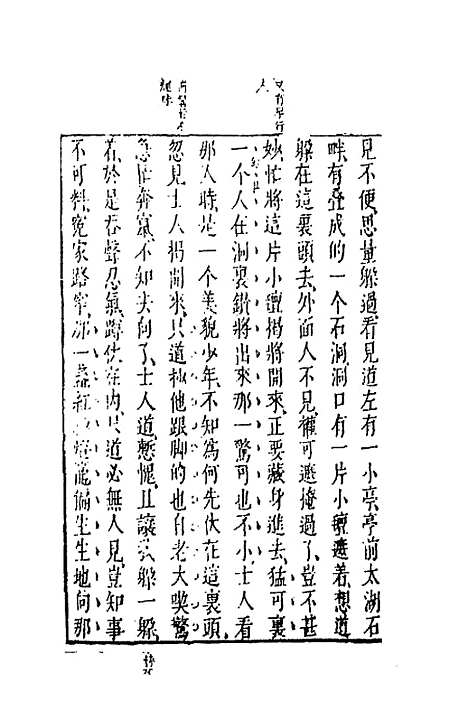 見不便思量躲過看見道左有一小亭亭前太湖石
畔有疊成的一個石洞洞口有一片小氊遮着想道
躲在這裏頭去外面人不見權可遮掩過了豈不甚
妙忙將這片小氊揭將開來正要藏身進去猛可裏
一個人在洞裏鑽將出來那一驚可也不小士人看
那人時是一個美貌少年不知爲何先伏在這裏頭
忽見士人揭開來只道抄他跟脚的也自老大喫驚
急忙奔竄不知去向了士人道慙愧且讓我躲一躲
着於是吞聲忍氣蹲伏在內只道必無人見豈知事
不可料冤家路窄那一盞紅紗燈籠偏生生地向那